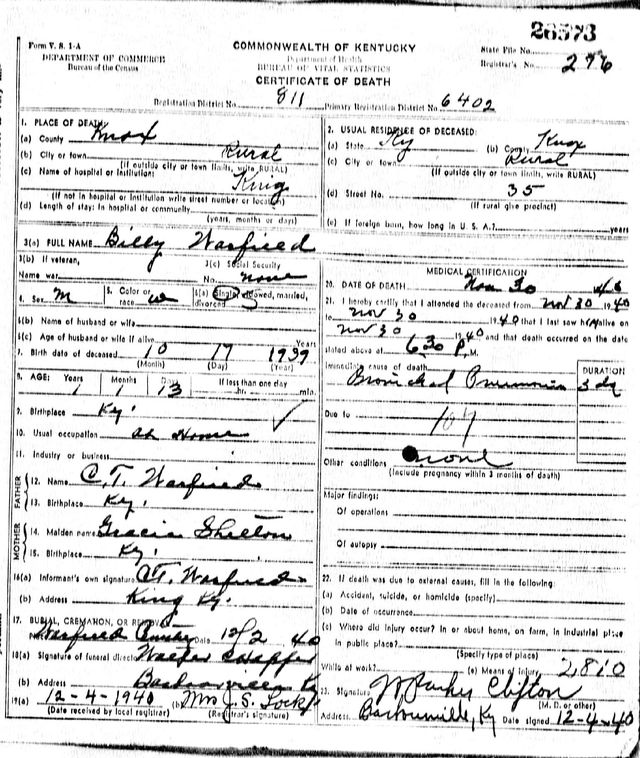 26573
Form V. S. 1-A
DEPARTMENT OF COMMERCE
Bureau of the Census
COMMONWEALTH OF KENTUCKY
Department of Health
BUREAU OF VITAL STATISTICS
CERTIFICATE OF DEATH
State File No.
Registrar's No. 276
Registration District No. 811 Primary Registration District No. 6402
1. PLACE OF DEATH:
(a) County Knox
(b) City or town Rural
(If outside city or town limits, write RURAL)
(c) Name of hospital or institution:
King
(If not in hospital or institution write street number or location)
(d) Length of stay: In hospital or community
(years, months or days)
2. USUAL RESIDENCE OF DECEASED:
(a) State Ky (b) County Knox
(c) City or town Rural
(If outside city or town limits, write RURAL)
(d) Street No. 35
(If rural give precinct)
(e) If foreign born, how long in U. S. A.? years
3(a) FULL NAME Billy Warfield
3(b) If veteran, 3(c) Social Security
Name war No. none
4. Sex M 5. Color or race w 6(a) Single, widowed, married, divorced
6(b) Name of husband or wife
6(c) Age of husband or wife if alive Years
7. Birth date of deceased 10 17 1939
(Month) (Day) (Year)
8. AGE: Years Months Days If less than one day
1 1 13 hr. min.
9. Birthplace Ky.
10. Usual occupation at Home
11. Industry or business
FATHER
12. Name C.T. Warfield
13. Birthplace Ky.
MOTHER
14. Maiden name Gracie Shelton
15. Birthplace Ky.
16(a) Informant's own signature C.T. Warfield
(b) Address King Ky.
17. BURIAL, CREMATION, OR REMOVAL
Warfield Date 12/2 40
18(a) Signature of funeral director
(b) Address Barbourville Ky
19(a) 12-4-1940 (b) Mrs J. S. Lock
(Date received by local registrar) (Registrar's signature)
MEDICAL CERTIFICATION
20. DATE OF DEATH Nov 30 40
21. I hereby certify that I attended the deceased from Nov 30 1940
to Nov 30 1940 that I last saw him alive on
Nov 30 1940 and that death occurred on the date
stated above at 6:30 P. M.
Immediate cause of death DURATION
Bronichal Pneumonia 3 dy
Due to 107
Other conditions none
(Include pregnancy within 3 months of death)
Major findings:
Of operations
Of autopsy
22. If death was due to external causes, fill in the following:
(a) Accident, suicide, or homicide (specify)
(b) Date of occurrence
(c) Where did injury occur? In or about home, on farm, in industrial place
in public place?
(Specify type of place)
While at work? (e) Means of injury 2810
23. Signature Parker Clifton
(M. D. or other)
Address Barbourville, Ky Date signed 12-4-40